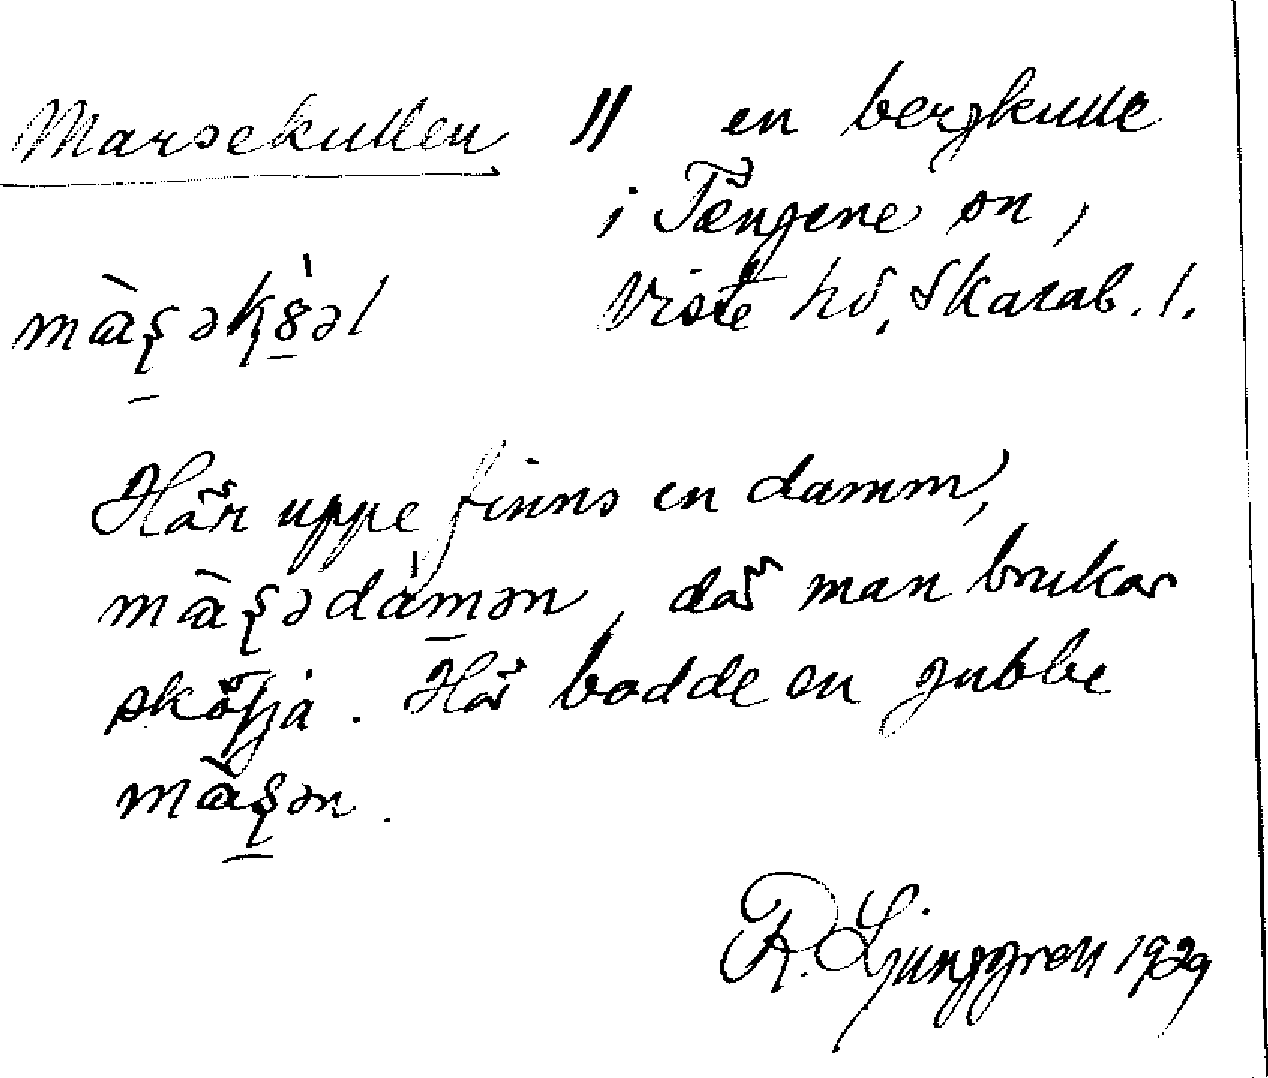 Marsekullen // en bergkulle
i Tængene sn,
Viste hd, Skarab. l.
màʂəkȣ̀əl
Här uppe finns en damm,
màʂədàmən, där man brukar
sköljä. Här bodde en gubbe
màʂən.
R. Ljunggren 1929